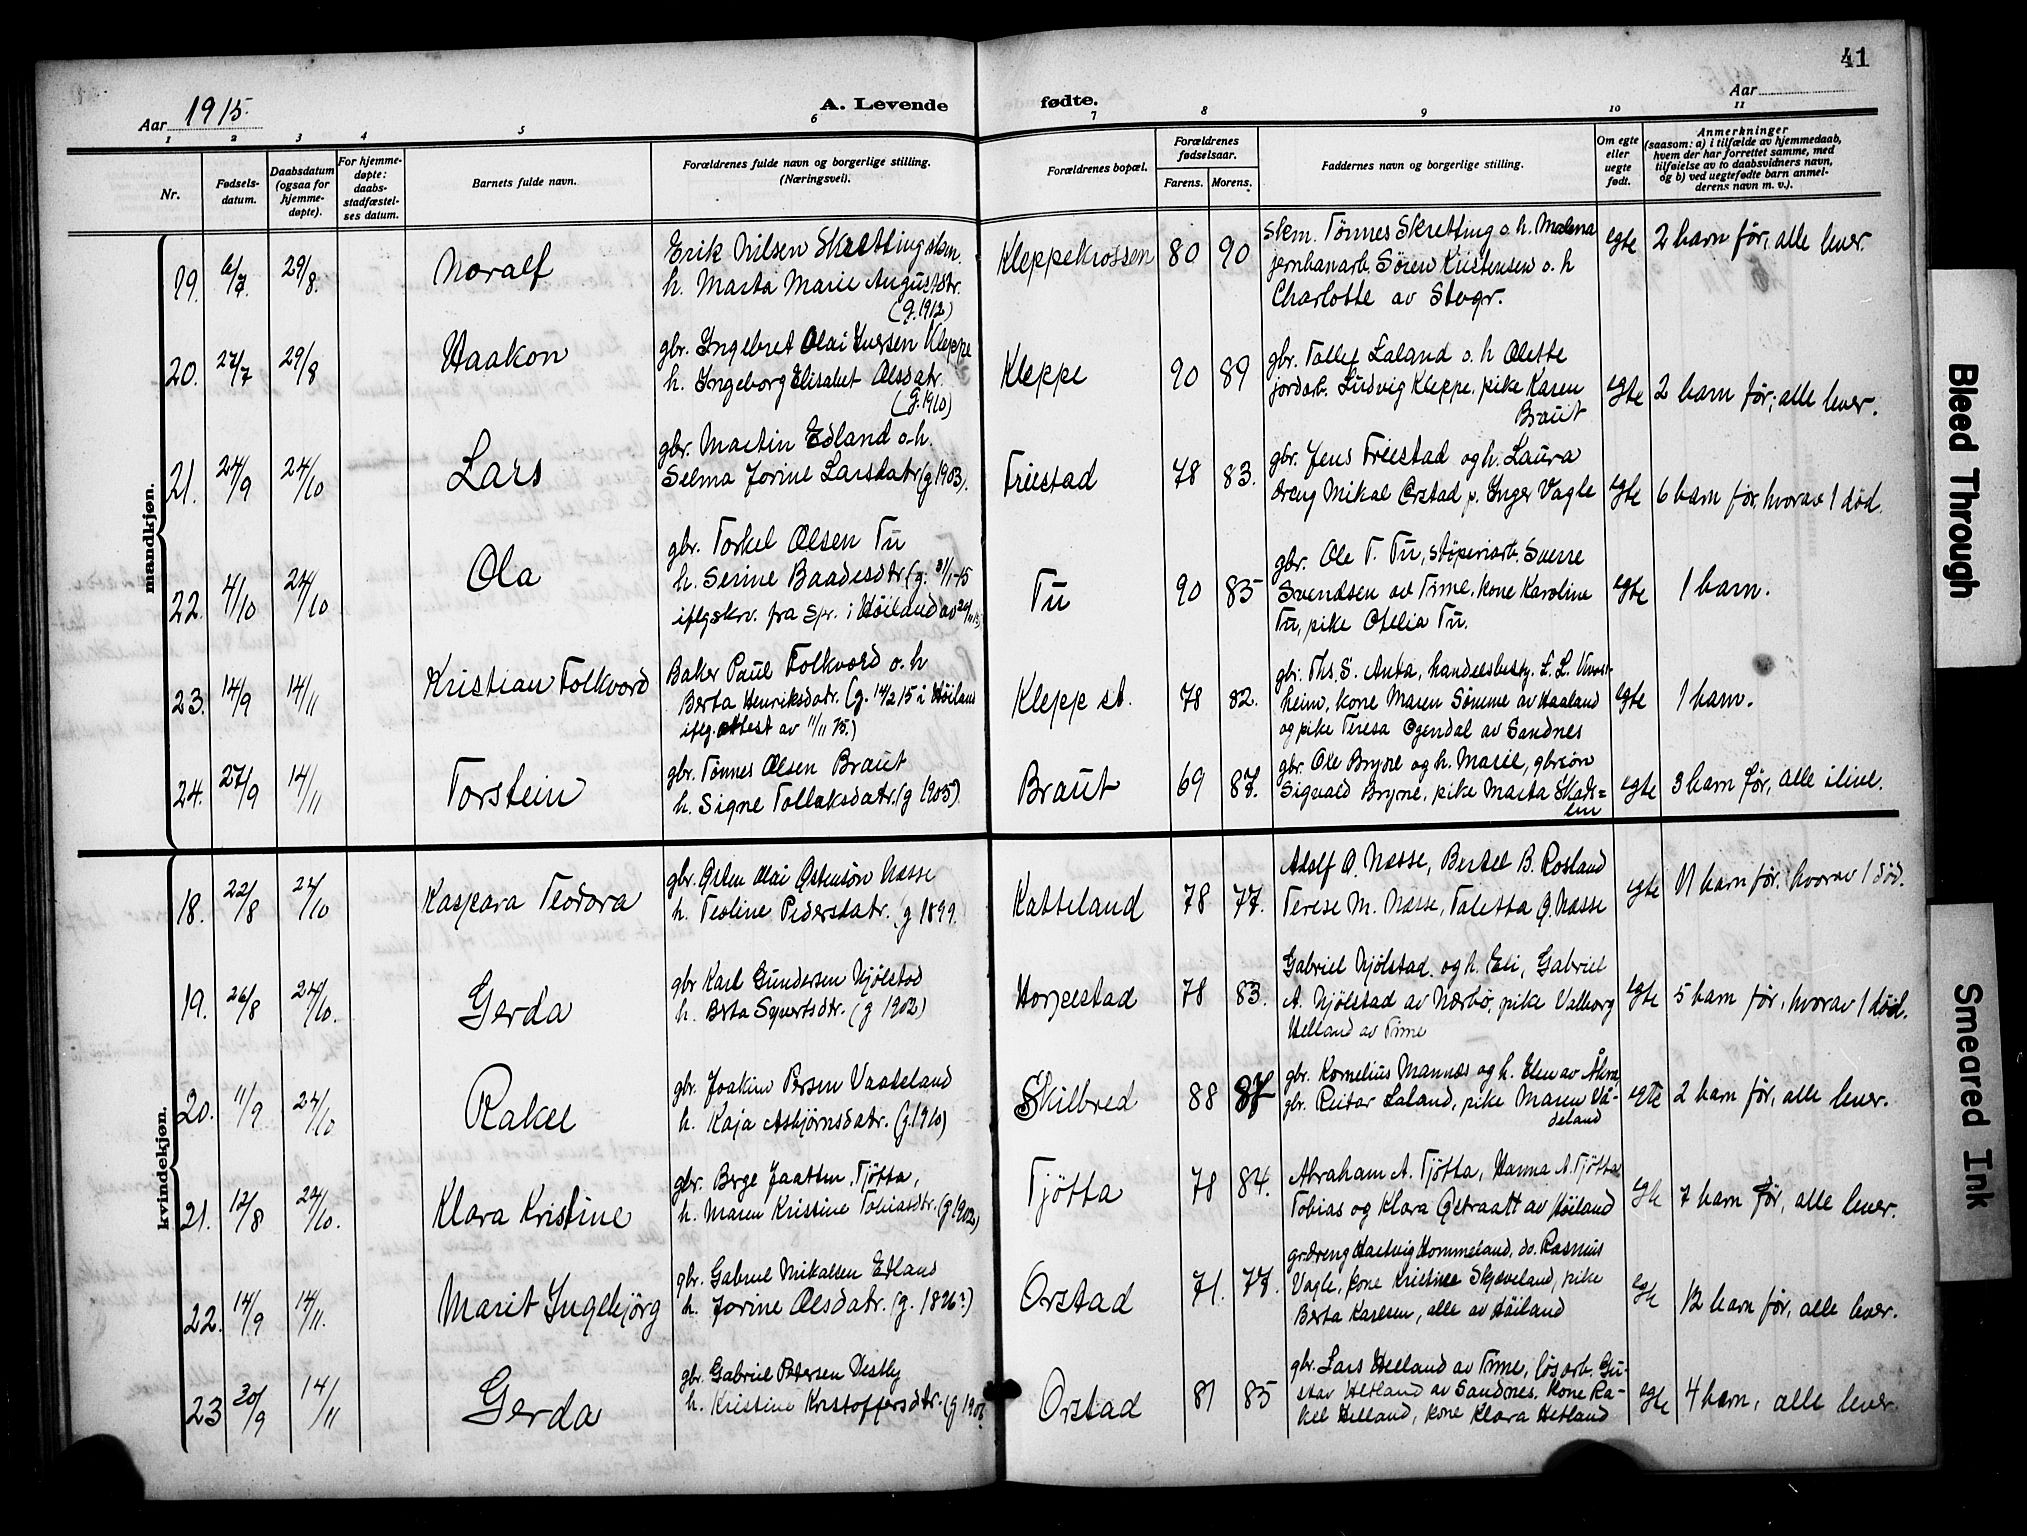 41
Aar 1915.
A. Levende fødte.
Aar
1 2 3 4 5 6 7 8 9 10 11
Nr.
Fødsels-
datum.
Daabsdatum
(ogsaa for
hjemme-
døpte).
For hjemme-
døpte:
daabs-
stadfæstel-
ses datum.
Barnets fulde navn.
Forældrenes fulde navn og borgerlige stilling.
(Næringsvei).
Forældrenes bopæl.
Forældrenes
fødselsaar.
Farens. Morens.
Faddernes navn og borgerlige stilling.
Om egte
eller
uegte
født.
Anmerkninger
(saasom: a) i tilfælde av hjemmedaab,
hvem der har forrettet samme, med
tilføielse av to daabsvidners navn,
og b) ved uegtefødte barn anmel-
derens navn m. v.).
mandkjøn.
19. 6/7 29/8. Noralf
Erik Nilsen Skretting skm.
h. Marta Marie Augustdtr.
(g. 1912)
Kleppekrossen 80 90
Skm. Tønnes Skretting o. h. Malena
jernbanarb. Søren Kristensen o. h
Charlotte av Stvgr.
egte 2 barn før, alle lever.
20. 27/7 29/8 Haakon
gbr. Ingebret Olai Iversen Kleppe
h. Ingeborg Elisabet Olsdatr.
(g. 1910)
Kleppe 90 89
gbr. Tollef Laland o. h Olette
jordarb. Ludvig Kleppe, pike Karen
Braut
egte 2 barn før, alle lever.
21. 24/9 24/10 Lars
gbr. Martin Edland o. h.
Selma Jorine Larsdatr (g 1903).
Friestad 78 83.
gbr. Jens Friestad og h. Laura
dreng Mikal Orstad p. Inger Vagle
egte 6 barn før, hvorav 1 død.
22. 4/10 24/10 Ola
gbr. Torkel Olsen Tu
h. Serine Baadesdtr (g. 31/1-15
iflg skr. fra spr. i Høiland av
Tu 90 85
gbr. Ole T. Tu, støperiarb. Sverre
Svendsen av Time, kone Karoline
Tu, pike Otelia Tu.
egte 1 barn.
23. 14/9 14/11 Kristian Folkvord
Baker Paul Folkvord o. h
Berta Henriksdatr. (g. 14/2 15 i Høiland
iflg. attest av 11/11 15.)
Klepp st. 78 82.
gbr. Ths. S. Anta, handelsbesty. L. L.
heim, kone Maren Sømme av Haaland
og pike Teresa Ogendal av Sandnes
egte 1 barn.
24. 27/9 14/11 Torstein
gbr. Tønnes Olsen Braut
h. Signe Tollaksdatr. (g 1905)
Braut 69 87.
gbr. Ole Bryne og h. Marie, gbrsøn
Sigvald Bryne, pike Marta Skads=
lem
egte 3 barn før, alle ilive.
kvindekjøn.
18. 22/8 24/10 Kaspara Teodora
gbr. Østen Olai Østensøn Næsse
h. Teoline Pedersdatr. (g 1899.
Katteland 78 77.
Adolf Ø. Næsse, Bertel B. Rosland
Terese M. Næsse, Taletta Ø. Næsse
egte 11 barn før, hvorav 1 død.
19. 26/8 24/10. Gerda
gbr Karl Gundersen Njølstad
h. Berta Syvertsdtr. (g 1902)
Horpestad 78 83.
Gabriel Njølstad. og h. Eli, Gabriel
A. Njølstad av Nærbø, pike Valborg
Helland av Time
egte 5 barn før, hvorav 1 død.
20. 11/9 24/10 Rakel
gbr. Joakim Persen Vaadeland
h. Kaja Asbjørnsdatr. (g. 1910)
Skilbred 88 87
gbr. Kornelius Mannæs og h. Elen av Åkra,
gbr. Reitar Laland, pike Maren Vå-
deland
egte 2 barn før, alle lever.
21. 12/8 24/10. Klara Kristine
gbr. Berge Jaatten Tjøtta,
h. Maren Kristine Tobiasdtr. (g 1902)
Tjøtta 78 84.
Abraham A. Tjøtta, Hanna A. Tjøtta
Tobias og Klara Østraatt av Høiland
egte 7 barn før, alle lever.
22. 14/9 14/11. Marit Ingebjørg
gbr. Gabriel Mikalsen Edland
h. Jorine Olsdatr. (g. 1896?)
Orstad 71. 77.
gr.dreng Hartvig Hommeland, do. Rasmus
Vagle, kone Kristine Skjæveland, pike
Berta Karlsen, alle av Høiland
egte 12 barn før, alle lever.
23 20/9 14/11 Gerda
gbr. Gabriel Petersen Vestly
h. Kristine Kristoffersdtr. (g 1908
Orstad 81 85
gbr. Lars Helland av Time, løsarb. Gu-
stav Hetland av Sandnes, kone Ra-
kel Helland, kone Klara Hetland
egte 4 barn, alle lever.
Bleed Through
Smeared Ink